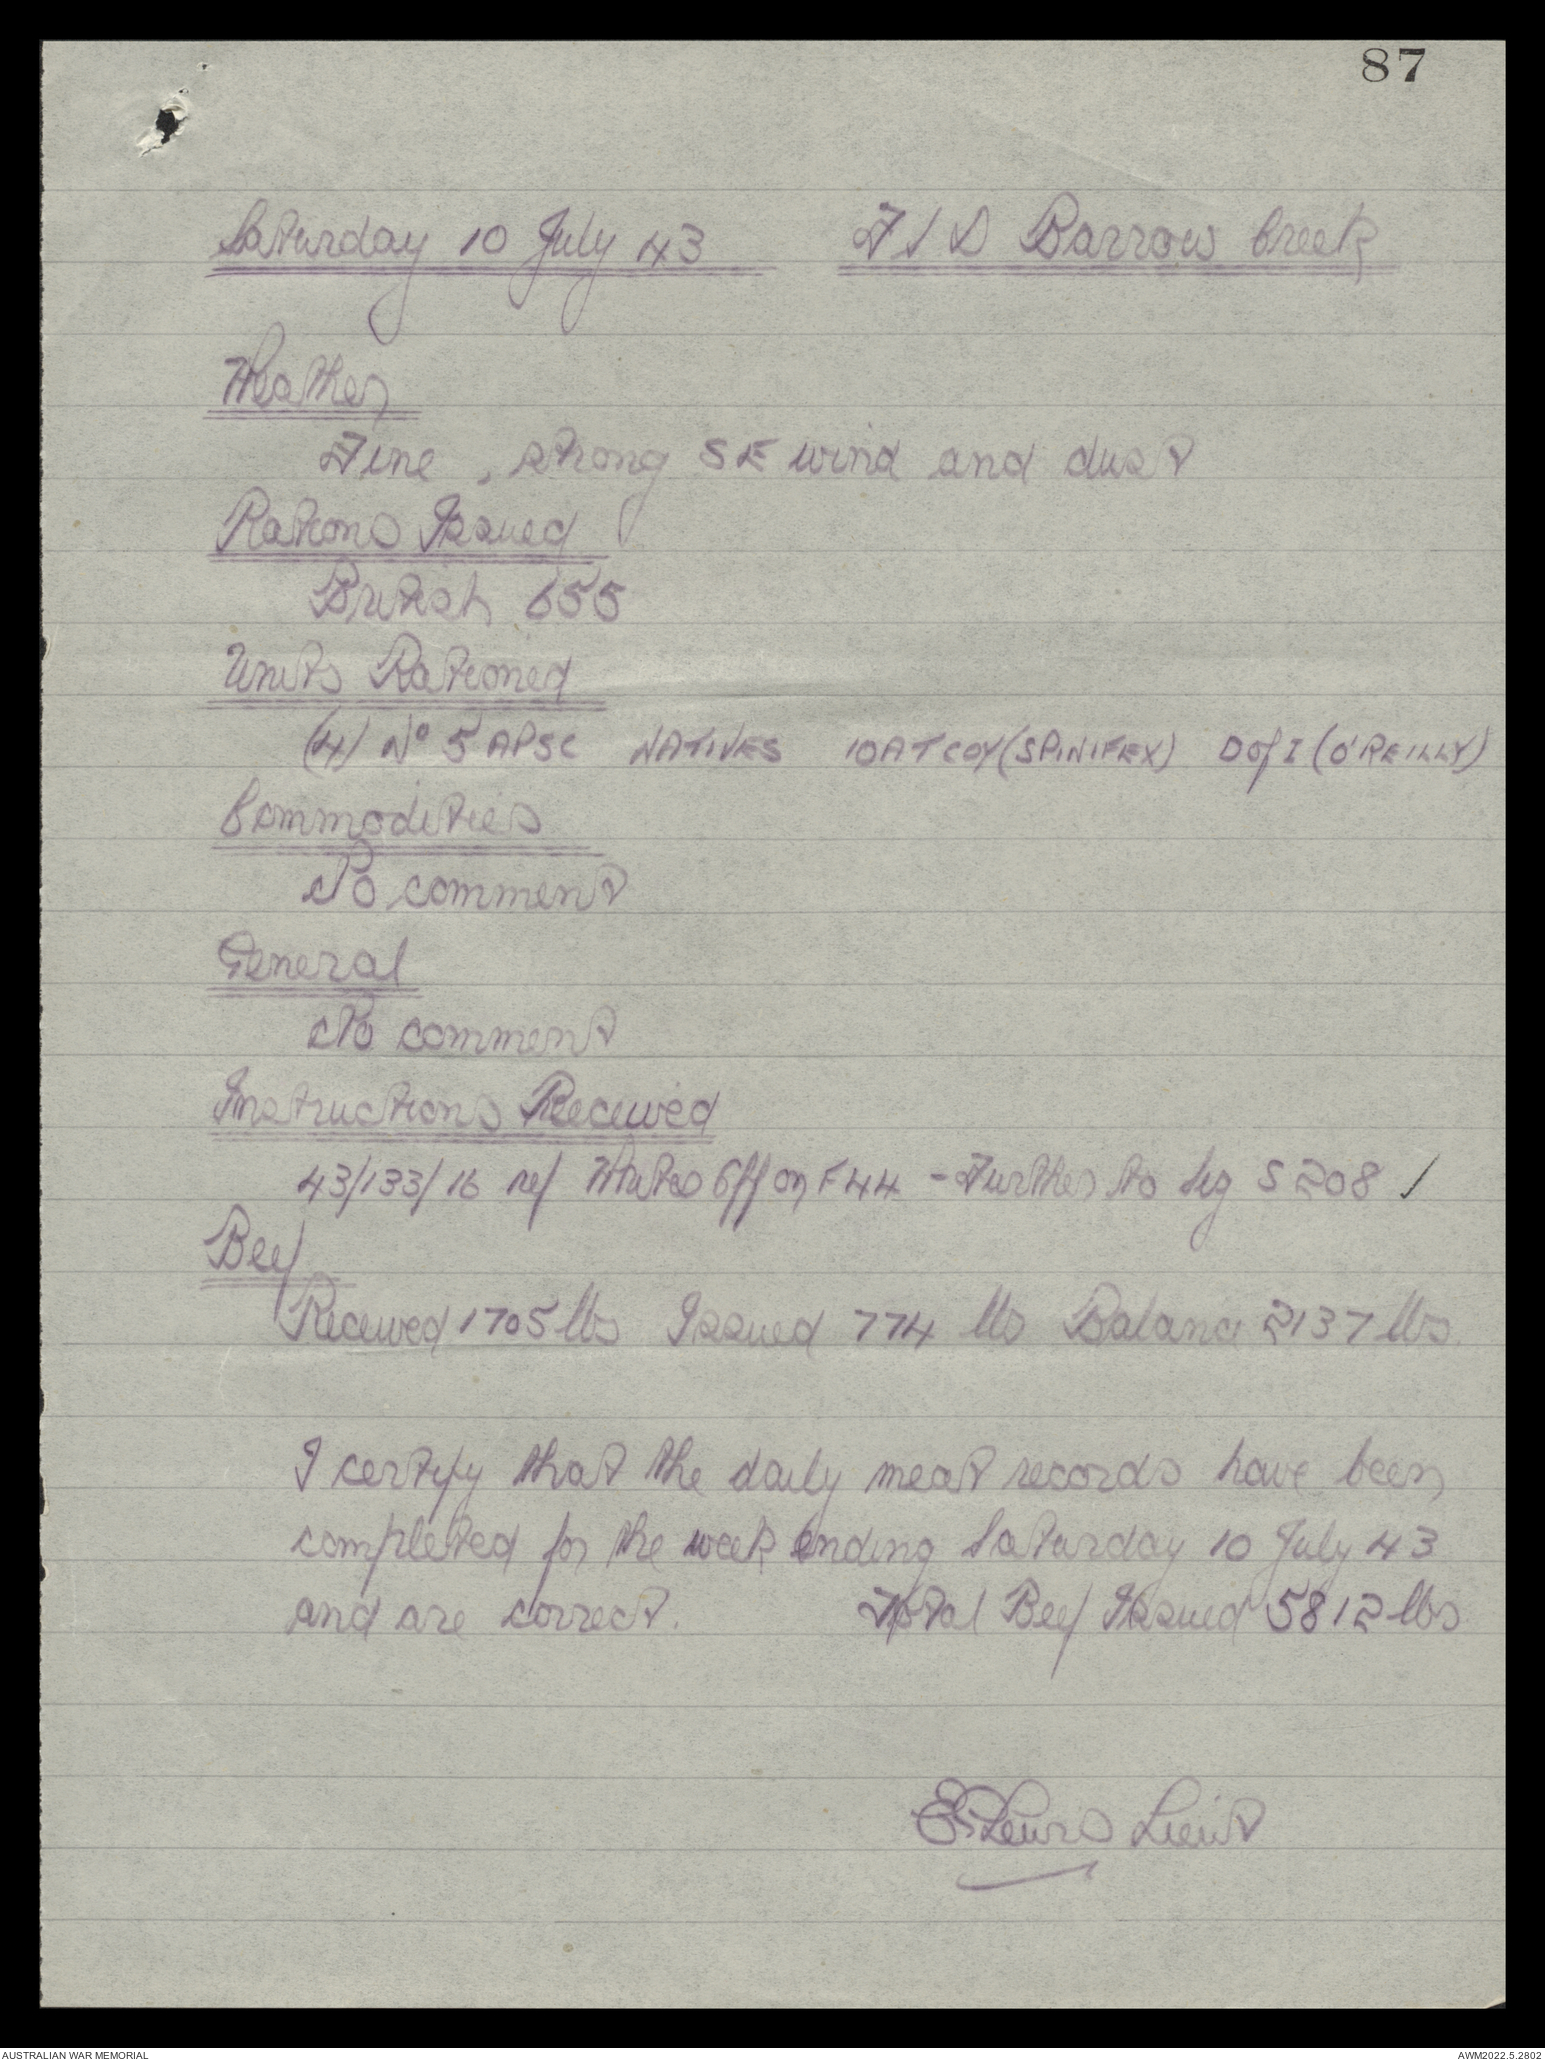 87
Saturday 10 July 43 FSD Barrow Creek
Weather
Fine, strong SE wind and dust
Rations Issued
British 655
Units Rationed
(4) No 5 APSC NATIVES 10 AT COY (SPINIFEX) D of I (O'REILLY)
Commodities
No comment
General
No comment
Instructions Received
43/133/16 ref Writes Off on F44 - Further to Sig S208 ✓
Beef
Received 1705 lbs Issued 774 lbs Balance 2137 lbs.
I certify that the daily meat records have been
completed for the week ending Saturday 10 July 43
and are correct. Total Beef Issued 5812 lbs
Lewis Lieut
AUSTRALIAN WAR MEMORIAL AWM2022.5.2802